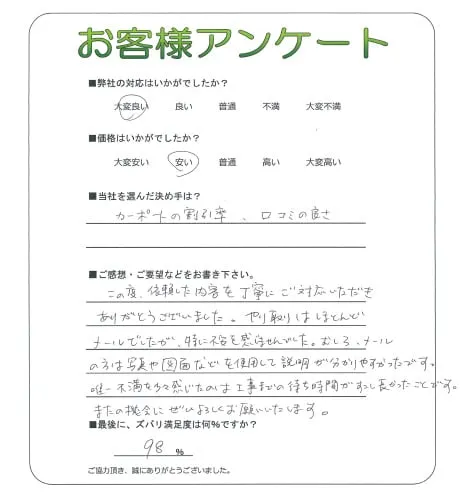 お客様アンケート
■弊社の対応はいかがでしたか？
大変良い 良い 普通 不満 大変不満
■価格はいかがでしたか？
大変安い 安い 普通 高い 大変高い
■当社を選んだ決め手は？
カーポートの割引率、口コミの良さ
■ご感想・ご要望などをお書き下さい。
この度、依頼した内容を丁寧にご対応いただき
ありがとうございました。やり取りはほとんど
メールでしたが、特に不容を感ませんでした。むしろ、メール
の方は写真や図面などを使用して説明が分かりやすかったです。
唯一不満を少々感じたのは工事までの待ち時間がすこし長かったことです。
またの機会にぜひよろしくお願いいたします。
■最後に、ズバリ満足度は何％ですか？
98 %
ご協力頂き、誠にありがとうございました。